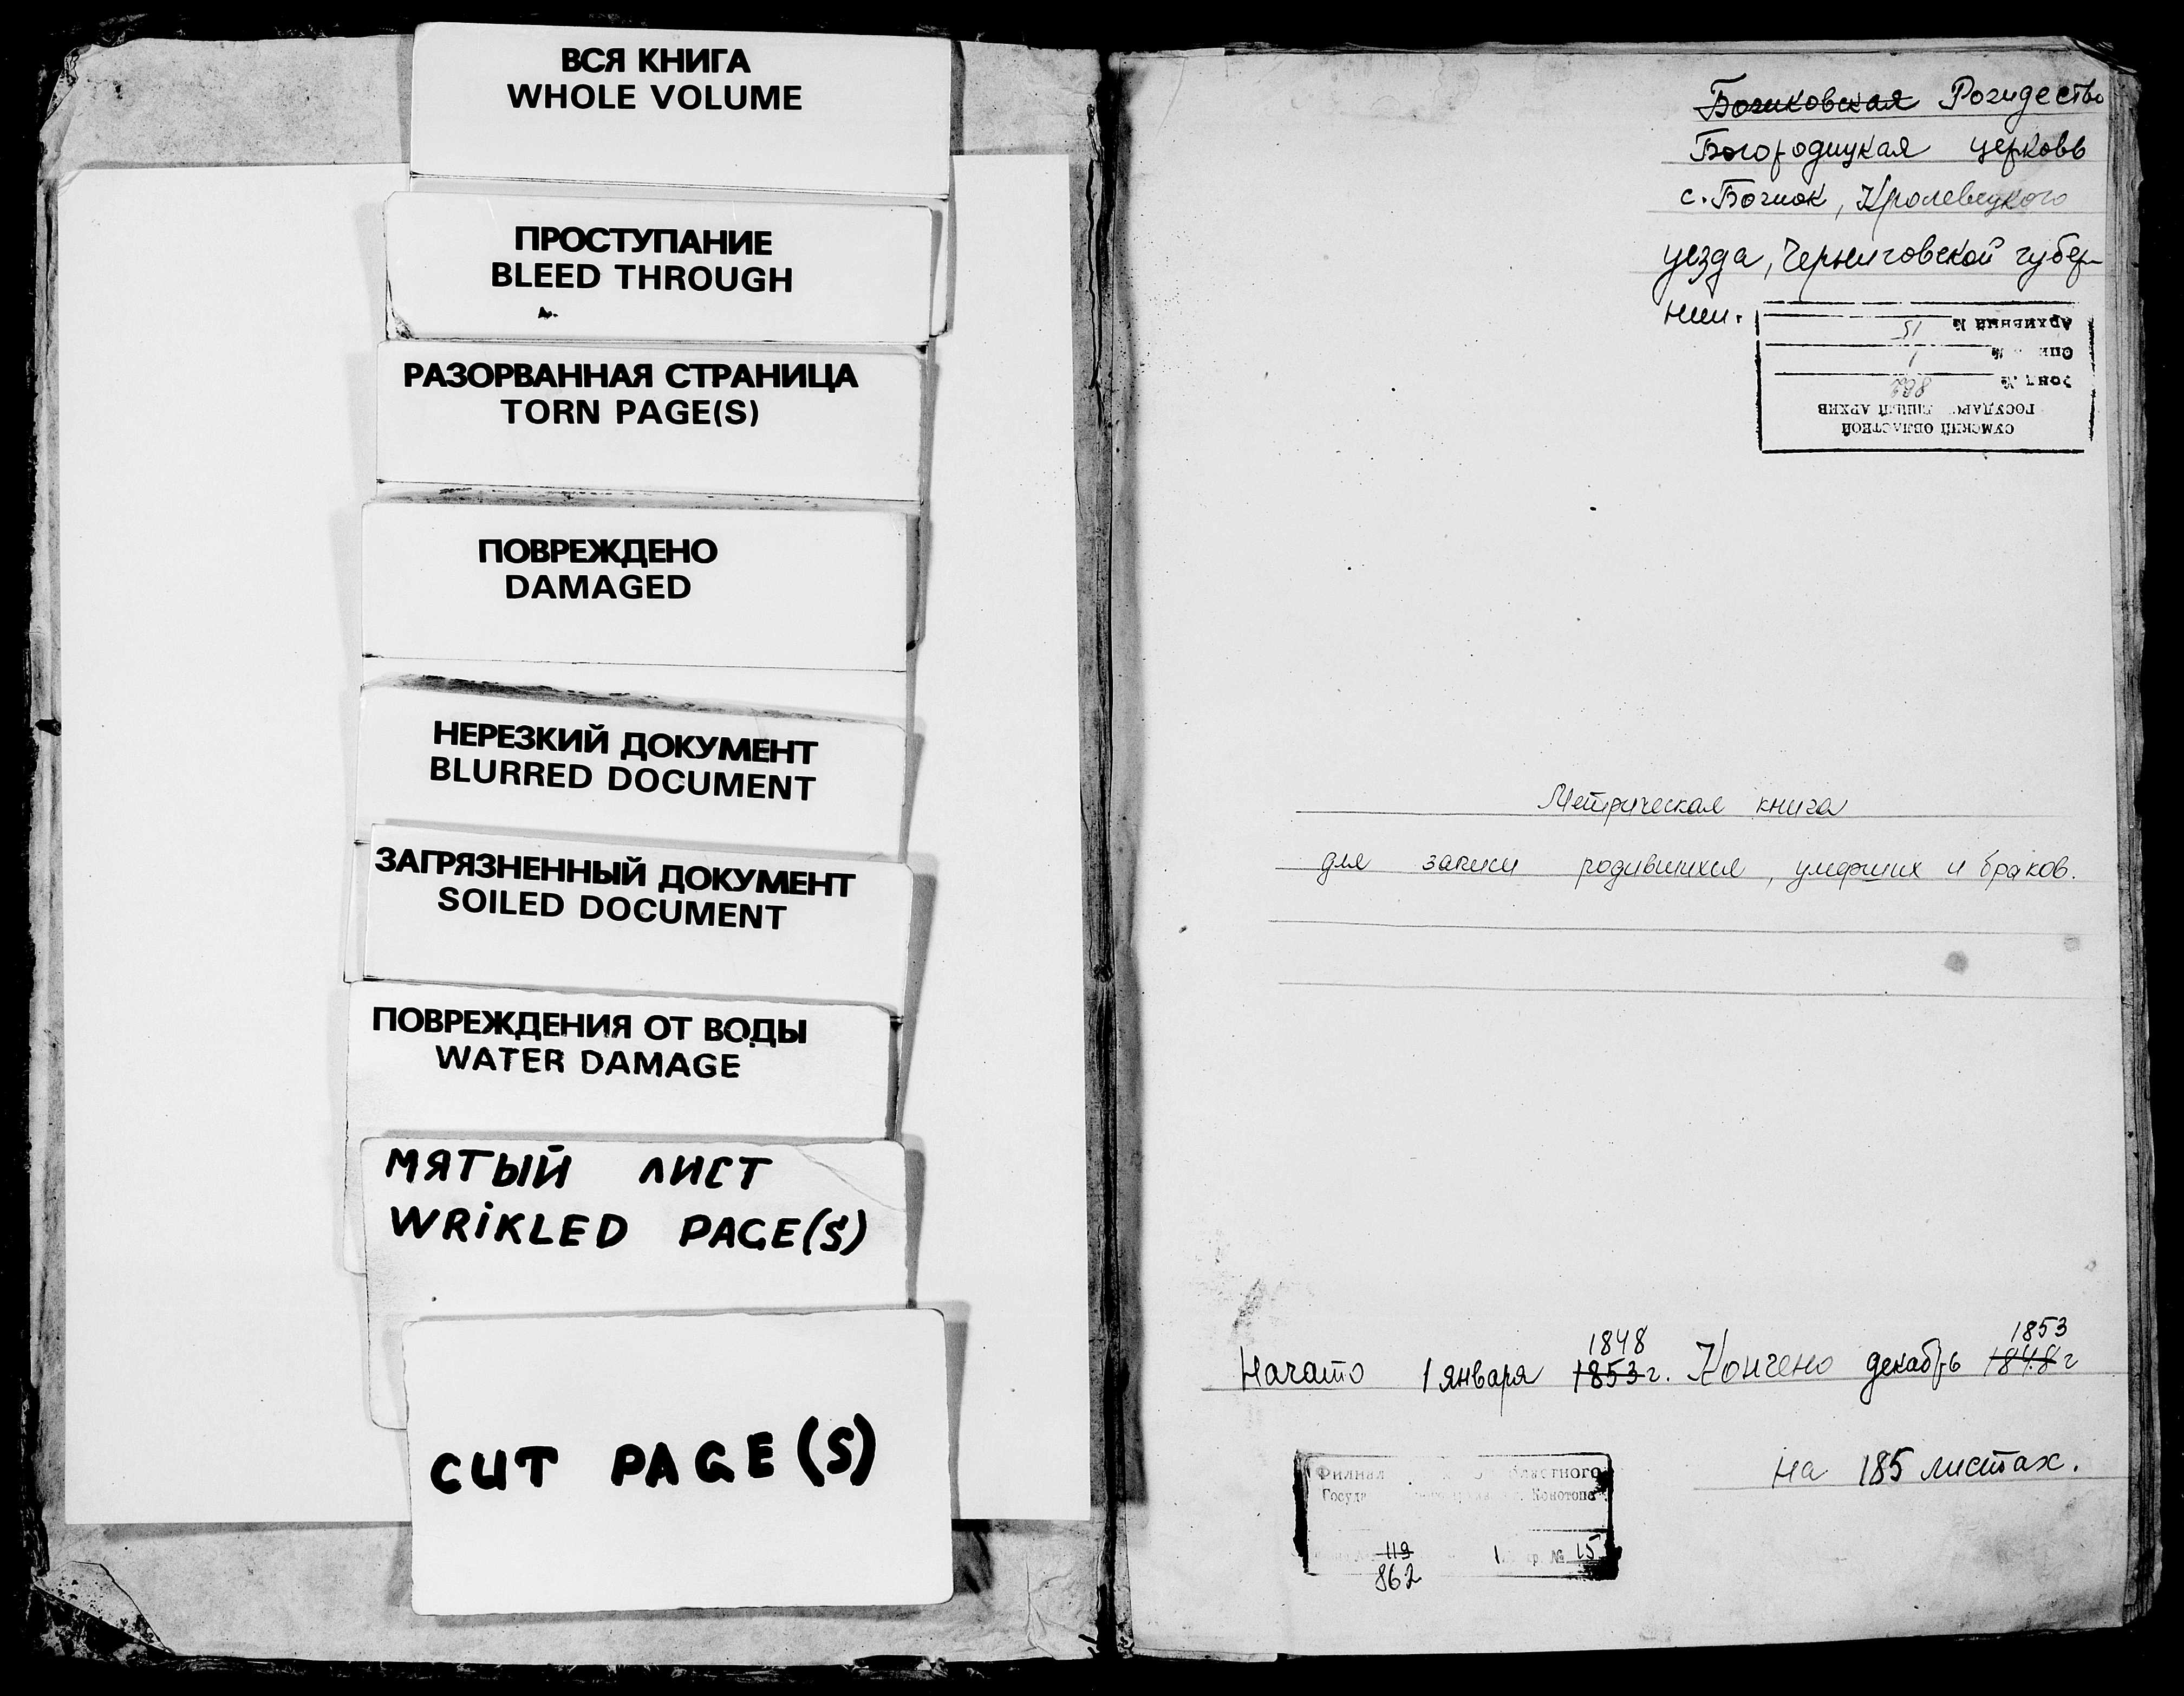 ВСЯ КНИГА
WHOLE VOLUME
ПРОСТУПАНИЕ
BLEED THROUGH
РАЗОРВАННАЯ СТРАНИЦА
TORN PAGE(S)
ПОВРЕЖДЕНО
DAMAGED
НЕРЕЗКИЙ ДОКУМЕНТ
BLURRED DOCUMENT
ЗАГРЯЗНЕННЫЙ ДОКУМЕНТ
SOILED DOCUMENT
ПОВРЕЖДЕНИЯ ОТ ВОДЫ
WATER DAMAGE
МЯТЫЙ ЛИСТ
WRiKLED PAGE(S)
CUT PAGE(S)
Рождество
Богородицкая церковь
с. Божок, Кролевецкого
уезда, Черниговской губер-
нии.
СУМСКИЙ ОБЛАСТНОЙ
АРХИВ
862
1
АРХИВНЫЙ № 15
Метрическая книга
для записи родившихся, умерших и браков.
1848 1853
Начато 1 января 1853 г. Кончено декабрь 1848 г
на 185 листах.
Филиал областного
Конотопе
119 1 № 15
862